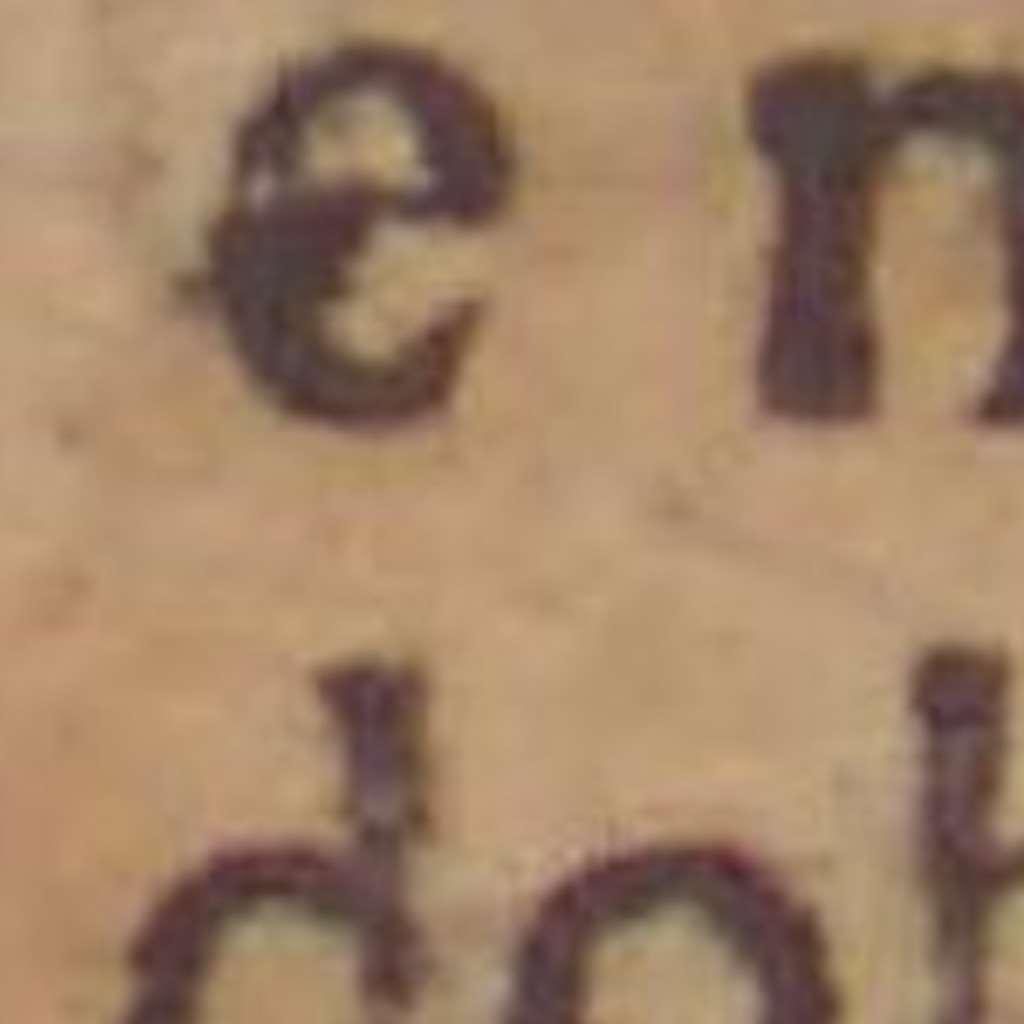 en
dob